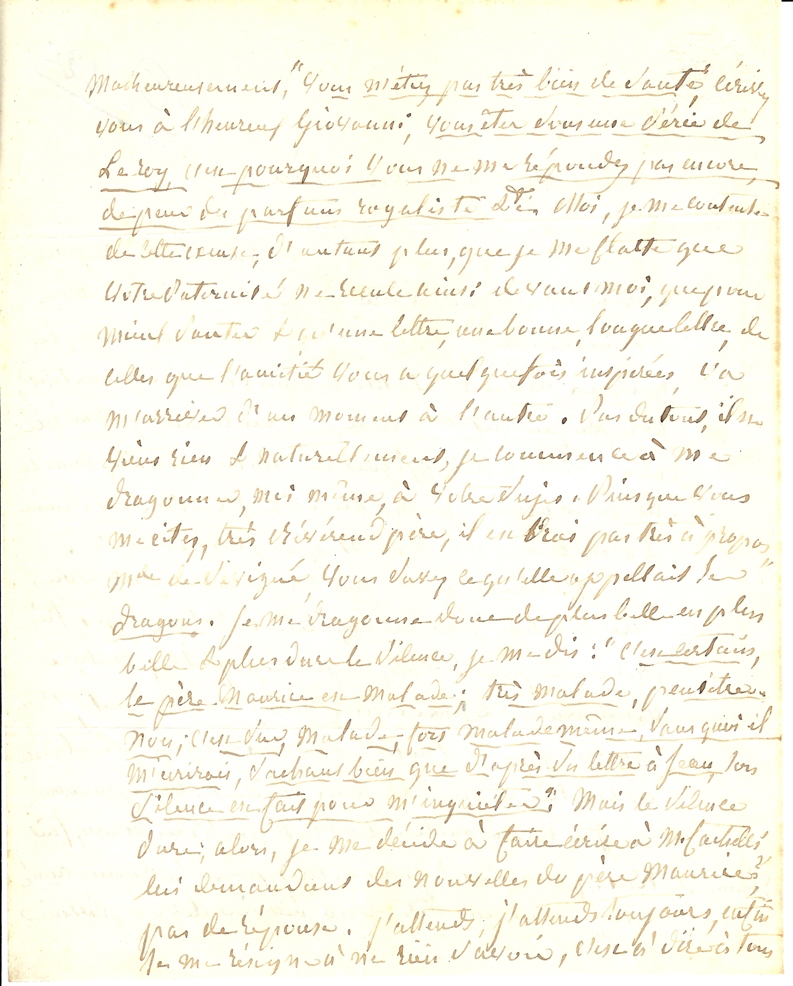 Malheureusement, "vous n'êtes pas très bien de santé, écrivez
vous à l'heureux Giovanni, vous êtes sous une série de
c'est pourquoi vous ne me répondez pas encore,
de peur du parfum royaliste &c. Moi, je me contente
de cette excuse, d'autant plus, que je me flatte que
votre Paternité ne recule ainsi devant moi, que pour
mieux sauter & qu'une lettre, une bonne, longue lettre, de
celles que l'amitié vous a quelquefois inspirées, va
m'arriver d'un moment à l'autre. Pas du tout, il ne
vient rien & naturellement, je commence à me
dragonner, moi même, à votre sujet. Puisque vous
me citez, très Révérend père, il en pas très à propos
Mde de Sévigné, vous savez ce qu'elle appellait "ses
dragons. Je me dragonne donc de plus belle en plus
belle & plus dure le silence, je me dis: "C'est certain,
le père Maurice est malade; très malade, peut-être.
Non; c'est sûr, malade, fort malade même, sans quoi il
m'écrirait, sachant bien que d'après sa lettre à Jean, son
silence est fait pour m'inquiéter". Mais le silence
dure; alors, je me décide à faire écrire à M.
lui demandant des nouvelles du père Maurice,
pas de réponse. J'attends, j'attends toujours, enfin
je me résigne à ne rien savoir, c'est à dire à tout